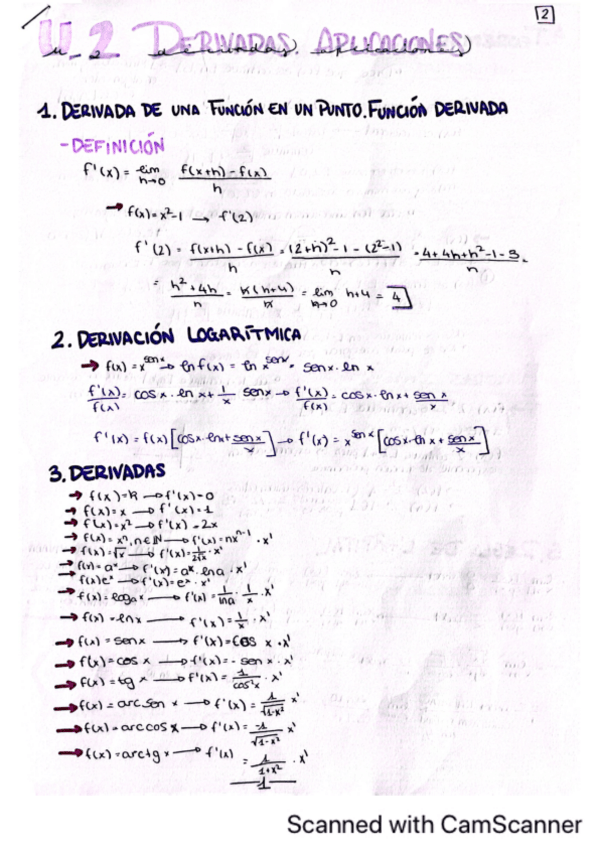 2
U.2 DERIVADAS. APLICACIONES
1. DERIVADA DE UNA FUNCIÓN EN UN PUNTO. FUNCIÓN DERIVADA
- DEFINICIÓN
f'(x) = lim h→0 f(x+h) - f(x) / h
→ f(x) = x²-1 → f'(2)
f'(2) = f(x+h) - f(x) / h = (2+h)² - 1 - (2²-1) / h = 4 + 4h + h² - 1 - 3 / h =
= h² + 4h / h = h(h+4) / h = lim h→0 h+4 = 4
2. DERIVACIÓN LOGARÍTMICA
→ f(x) = x^senx → ln f(x) = ln x^senx = senx · ln x
f'(x) / f(x) = cos x · ln x + 1/x senx → f'(x) / f(x) = cosx · ln x + sen x / x
f'(x) = f(x) [cosx · lnx + senx / x] → f'(x) = x^senx [cosx · ln x + senx / x]
3. DERIVADAS
→ f(x) = k → f'(x) = 0
→ f(x) = x → f'(x) = 1
→ f(x) = x² → f'(x) = 2x
→ f(x) = xⁿ, n∈ℕ → f'(x) = nxⁿ⁻¹ · x'
→ f(x) = √x → f'(x) = 1/2√x · x'
→ f(x) = aˣ → f'(x) = aˣ · lna · x'
→ f(x) eˣ → f'(x) = eˣ · x'
→ f(x) = logₐx → f'(x) = 1/lna · 1/x · x'
→ f(x) = lnx → f'(x) = 1/x · x'
→ f(x) = senx → f'(x) = cos x · x'
→ f(x) = cos x → f'(x) = - sen x · x'
→ f(x) = tg x → f'(x) = 1/cos²x · x'
→ f(x) = arc sen x → f'(x) = 1/√1-x² x'
→ f(x) = arc cos x → f'(x) = -1/√1-x² x'
→ f(x) = arc tg x → f'(x) = 1/1+x² · x'
1
Scanned with CamScanner